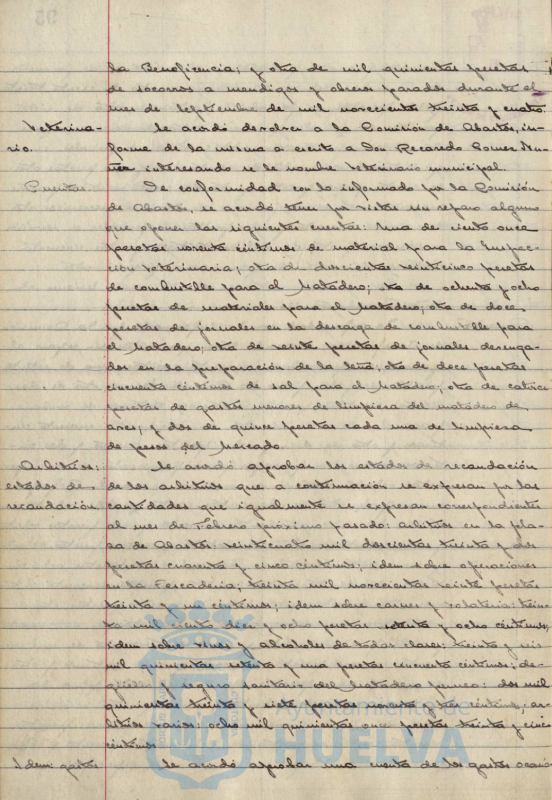 95
la Beneficencia; y otra de mil quinientas pesetas
de socorros a mendigos y obreros parados durante el
mes de Septiembre de mil novecientos treinta y cuatro.
Veterina-
rio.
Se acordó devolver a la Comisión de Abastos, in-
forme de la misma a escrito a Don Recaredo Gomez Nu-
ñez interesando se le nombre Veterinario municipal.
Cuentas.
De conformidad con lo informado por la Comisión
de Abastos, se acordó tener por vistas sin reparo alguno
que oponer las siguientes cuentas: Una de ciento once
pesetas noventa céntimos de material para la Inspec-
ción Veterinaria; otra de doscientas veinticinco pesetas
de combustible para el Matadero; otra de ochenta y ocho
pesetas de materiales para el Matadero; otra de doce
pesetas de jornales en la descarga de combustible para
el Matadero; otra de veinte pesetas de jornales devenga-
dos en la preparación de la leña; otra de doce pesetas
cincuenta céntimos de sal para el Matadero; otra de catorce
pesetas de gastos menores de limpieza del matadero de
aves; y dos de quince pesetas cada una de limpieza
de pesos del Mercado.
Arbitrios:
estados de
recaudación
Se acordó aprobar los estados de recaudación
de los arbitrios que a continuación se expresan por las
cantidades que igualmente se expresan correspondientes
al mes de Febrero próximo pasado: arbitrios en la pla-
za de Abastos: veinticuatro mil doscientas treinta y dos
pesetas cuarenta y cinco céntimos; idem sobre operaciones
en la Pescadería; treinta mil novecientas veinte pesetas
treinta y un céntimos; idem sobre carnes y volatería: trein-
ta mil ciento diez y ocho pesetas y ocho céntimos;
idem sobre vinos y alcoholes de todas clases: treinta y seis
mil quinientas setenta y una pesetas cincuenta céntimos; de-
güello y registro sanitario del Matadero: dos mil
quinientas treinta y siete pesetas noventa y tres céntimos; ar-
bitrios varios: ocho mil quinientas once pesetas treinta y cinco
céntimos
HUELVA
Idem: gastos
Se acordó aprobar una cuenta de los gastos ocasio-